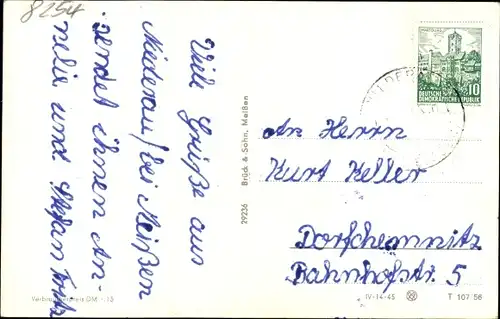 8254
Viele Grüße aus
Niederau/bei Meißen
sendet ihnen An-
nelie und Stefan Fritz
Verbraucherpreis DM -.15
29236 Brück & Sohn, Meißen
WARTBURG
10
DEUTSCHE
DEMOKRATISCHE REPUBLIK
An Herrn
Kurt Keller
Dorfchemnitz
Bahnhofstr. 5
IV-14-45
T 107 58